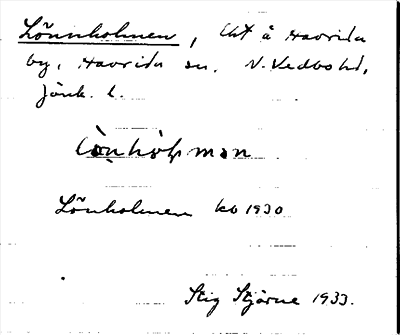 Lönnholmen, lht å Haurida
by, Haurida sn. N. Vedbo hd,
Jönk. l.
lönhòlmən
Lönholmen kb 1930
Stig Stjärne 1933.